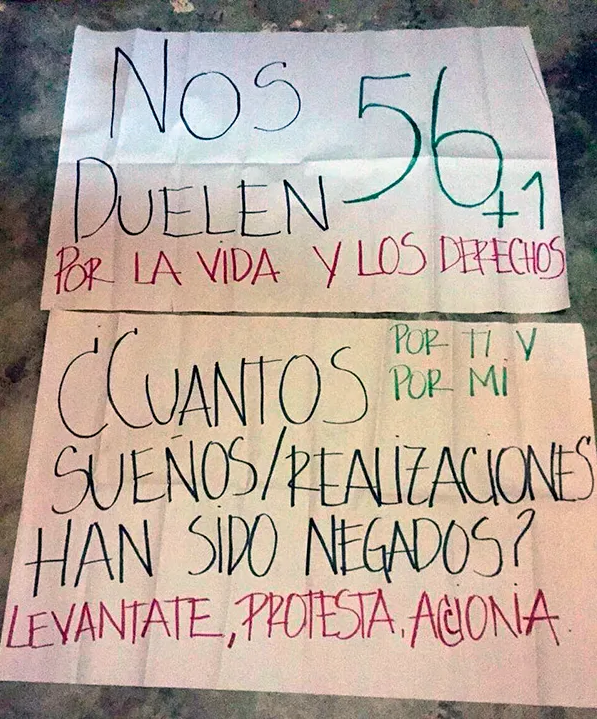 NOS 56
DUELEN +1
POR LA VIDA Y LOS DERECHOS
¿CUANTOS POR TI Y
POR MI
SUEÑOS/REALIZACIONES
HAN SIDO NEGADOS?
LEVANTATE, PROTESTA, ACCIONA